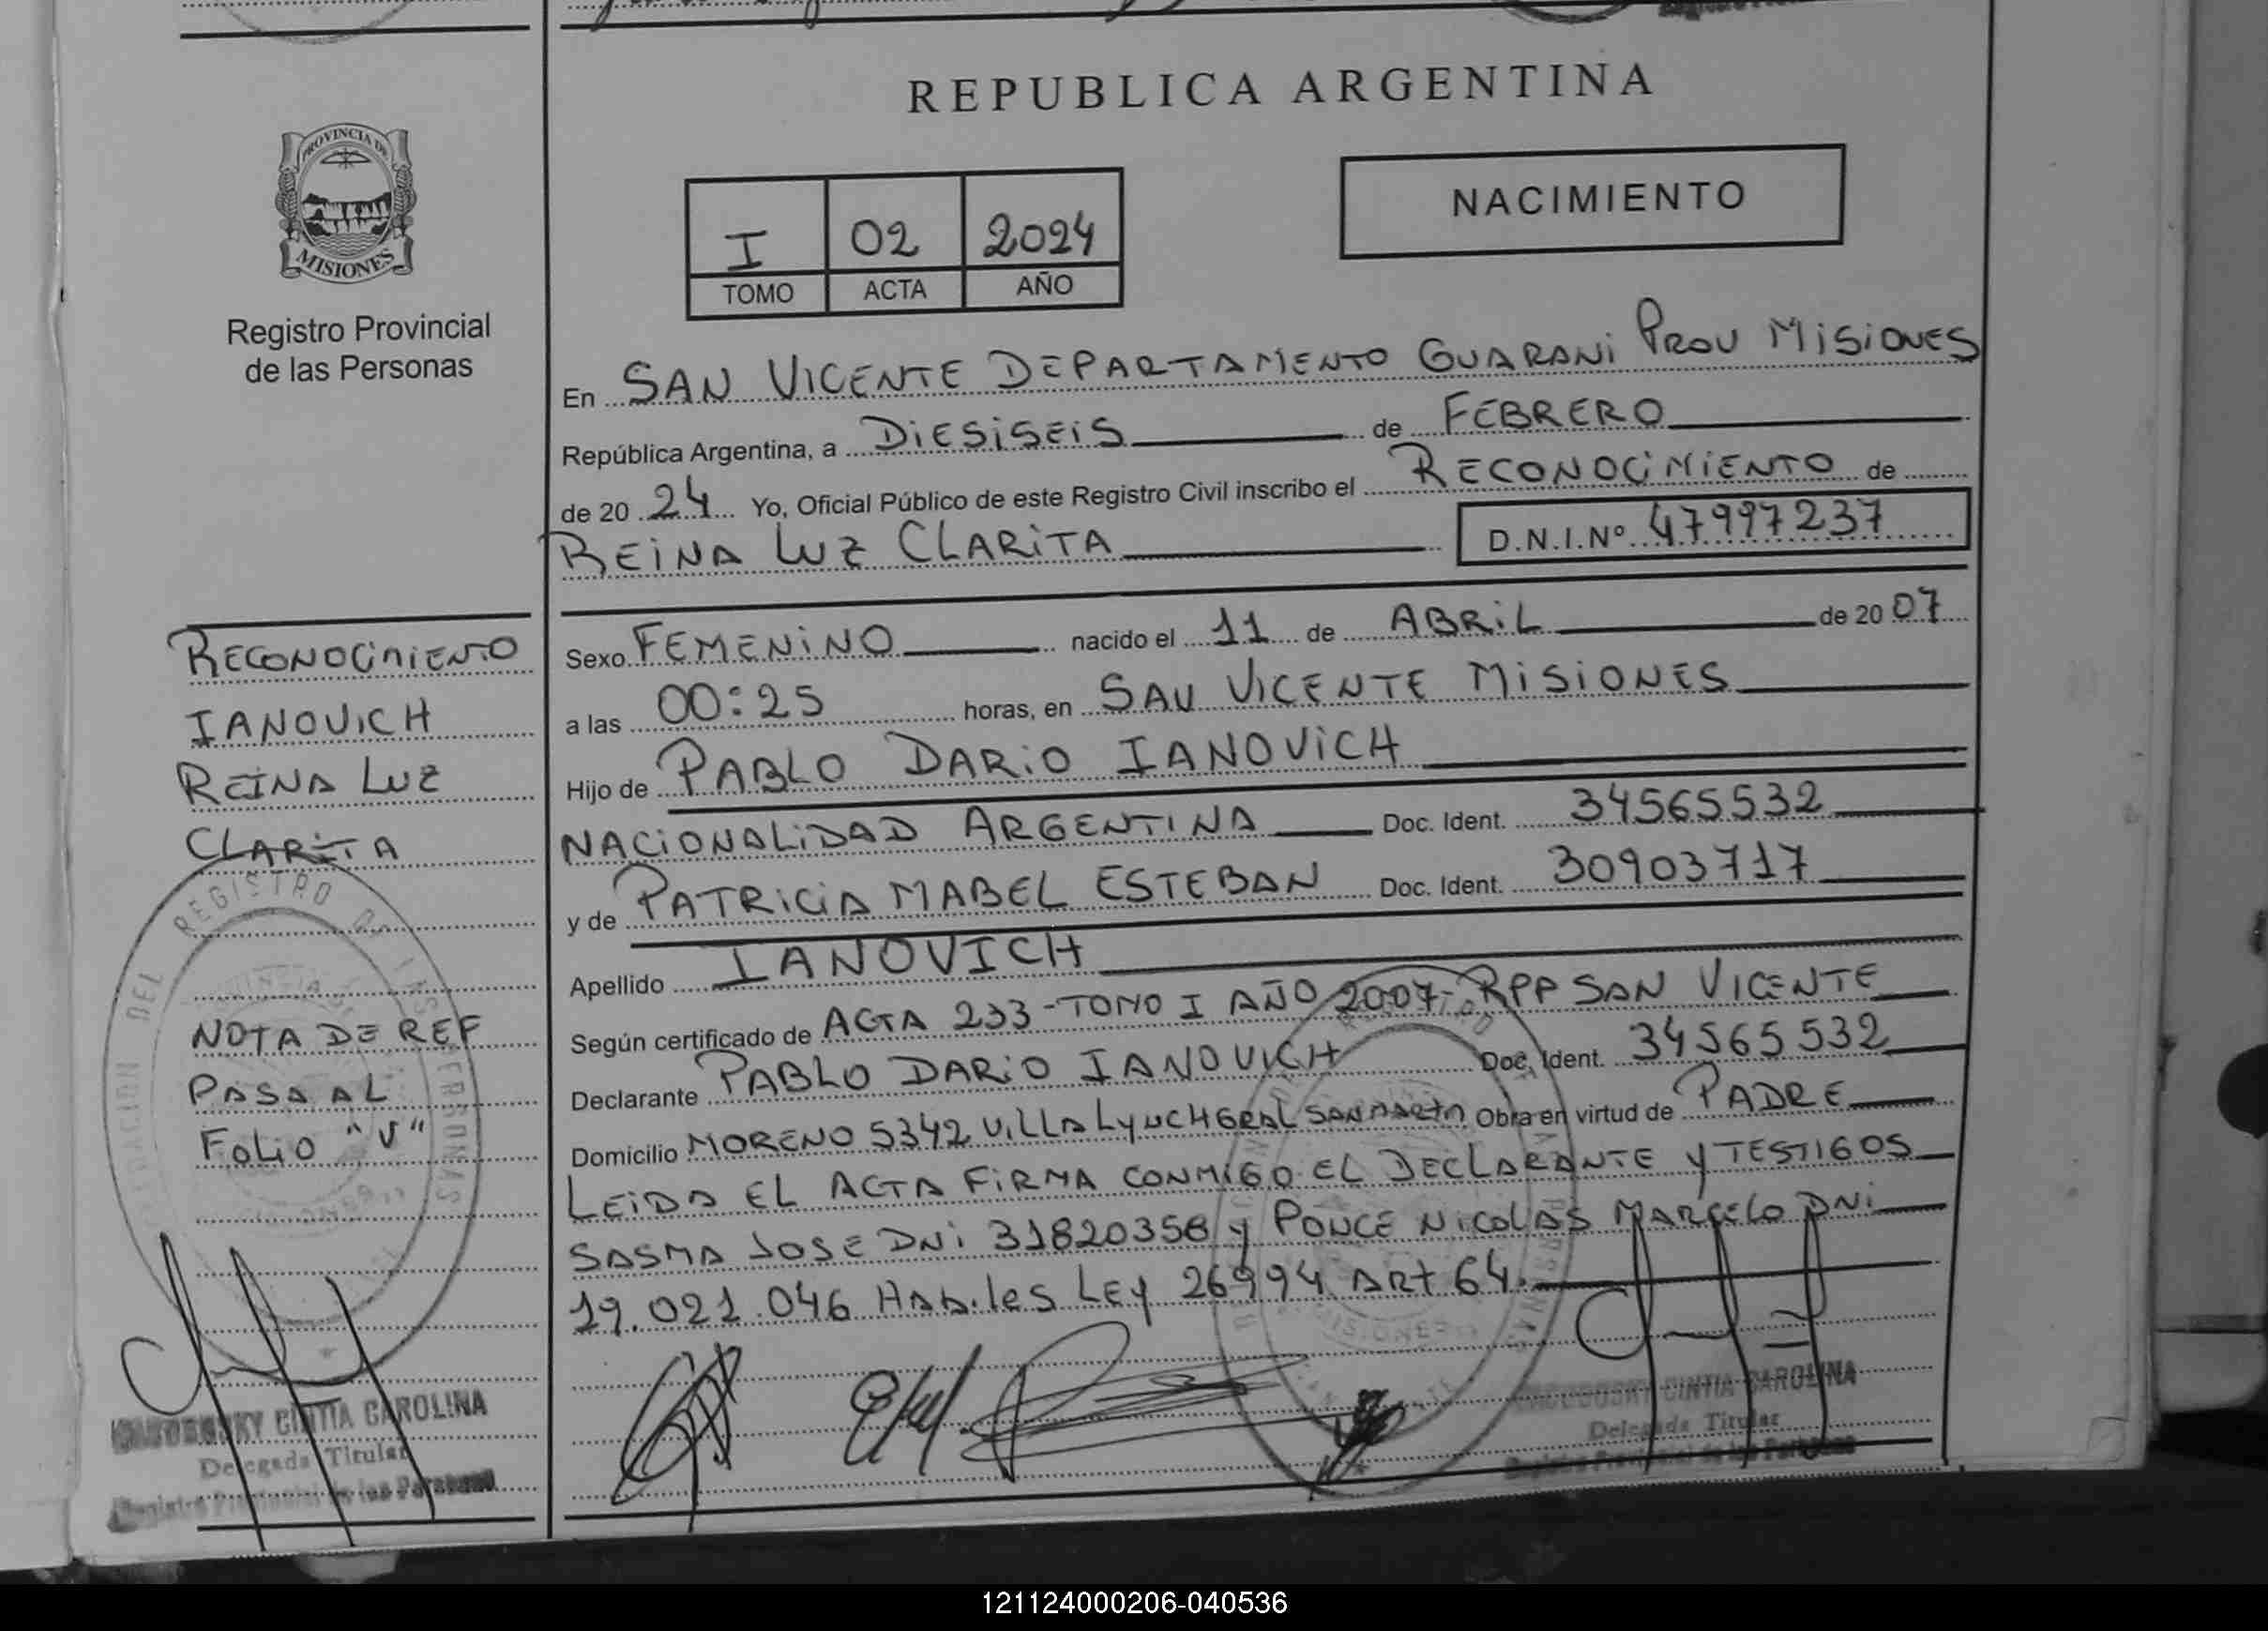 REPUBLICA ARGENTINA
PROVINCIA DE
MISIONES
Registro Provincial
de las Personas
NACIMIENTO
I 02 2024
TOMO ACTA AÑO
En SAN VICENTE DEPARTAMENTO GUARANI PROV MISIONES
República Argentina, a DIESISEIS de FEBRERO
de 20 24 Yo, Oficial Público de este Registro Civil inscribo el RECONOCIMIENTO de
REINA LUZ CLARITA D.N.I.Nº 47997237
Sexo FEMENINO nacido el 11 de ABRIL de 20 07
a las 00:25 horas, en SAN VICENTE MISIONES
Hijo de PABLO DARIO IANOVICH
NACIONALIDAD ARGENTINA Doc. Ident. 34565532
y de PATRICIA MABEL ESTEBAN Doc. Ident. 30903717
Apellido IANOVICH
Según certificado de ACTA 233-TOMO I AÑO 2007-RPP SAN VICENTE
Declarante PABLO DARIO IANOVICH Doc. Ident. 34565532
Domicilio MORENO 5342 VILLA LYNCH GRAL SAN MARTIN Obra en virtud de PADRE
LEIDA EL ACTA FIRMA CONMIGO EL DECLARANTE Y TESTIGOS
SASMA JOSE DNI 31820358 y PONCE NICOLAS MARCELO DNI
19.021.046 HABILES LEY 26994 ART 64.
RECONOCIMIENTO
IANOVICH
REINA LUZ
CLARITA
NOTA DE REF
PASA AL
FOLIO "V"
CINTIA CAROLINA
Delegada Titular
CINTIA CAROLINA
Delegada Titular
121124000206-040536